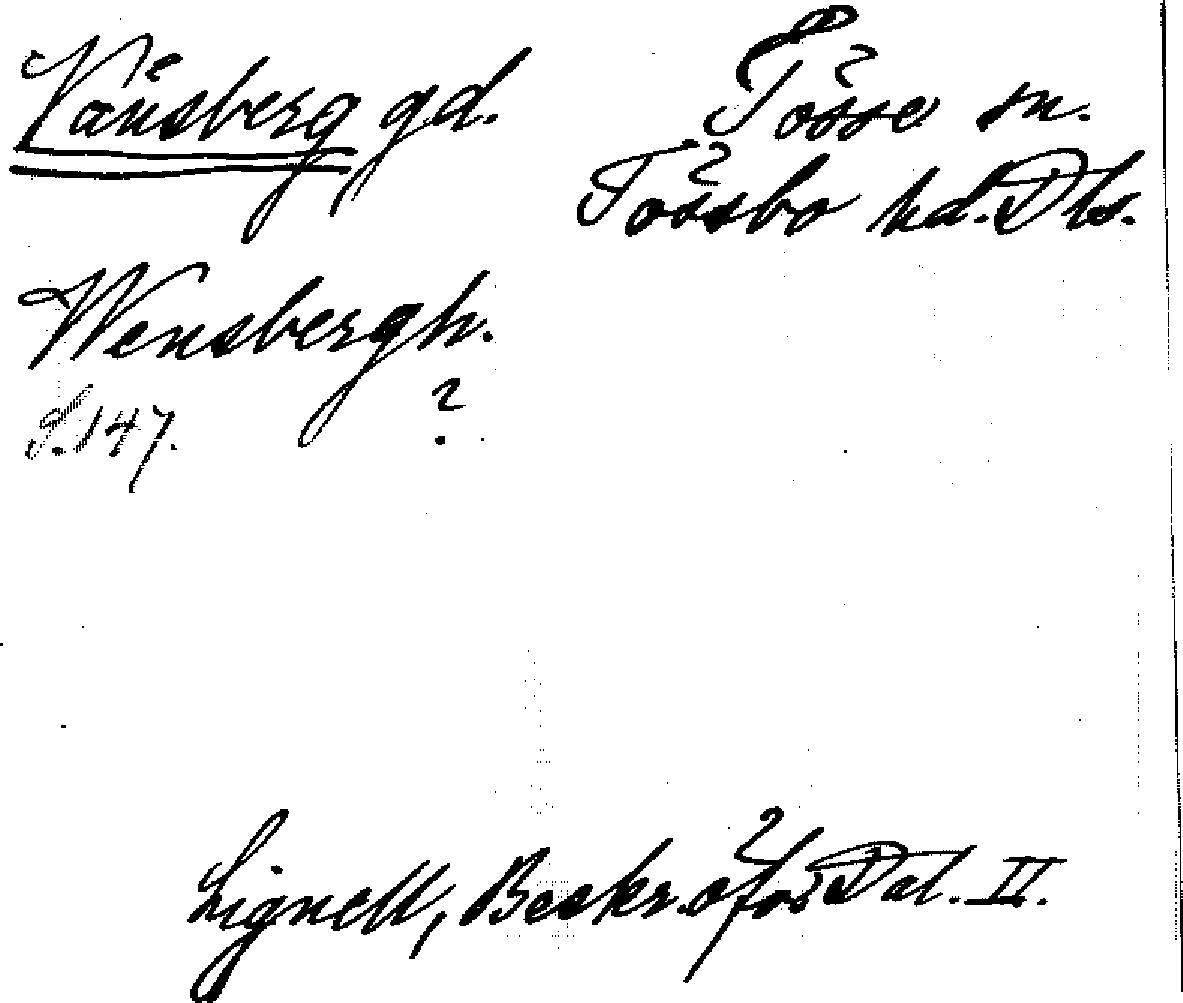 Vänsberg gd.
Tösse sn.
Tössbo hd. Dls.
Wensbergh.
S. 147. ?
Lignell, Beskr. öfver Dal. II.